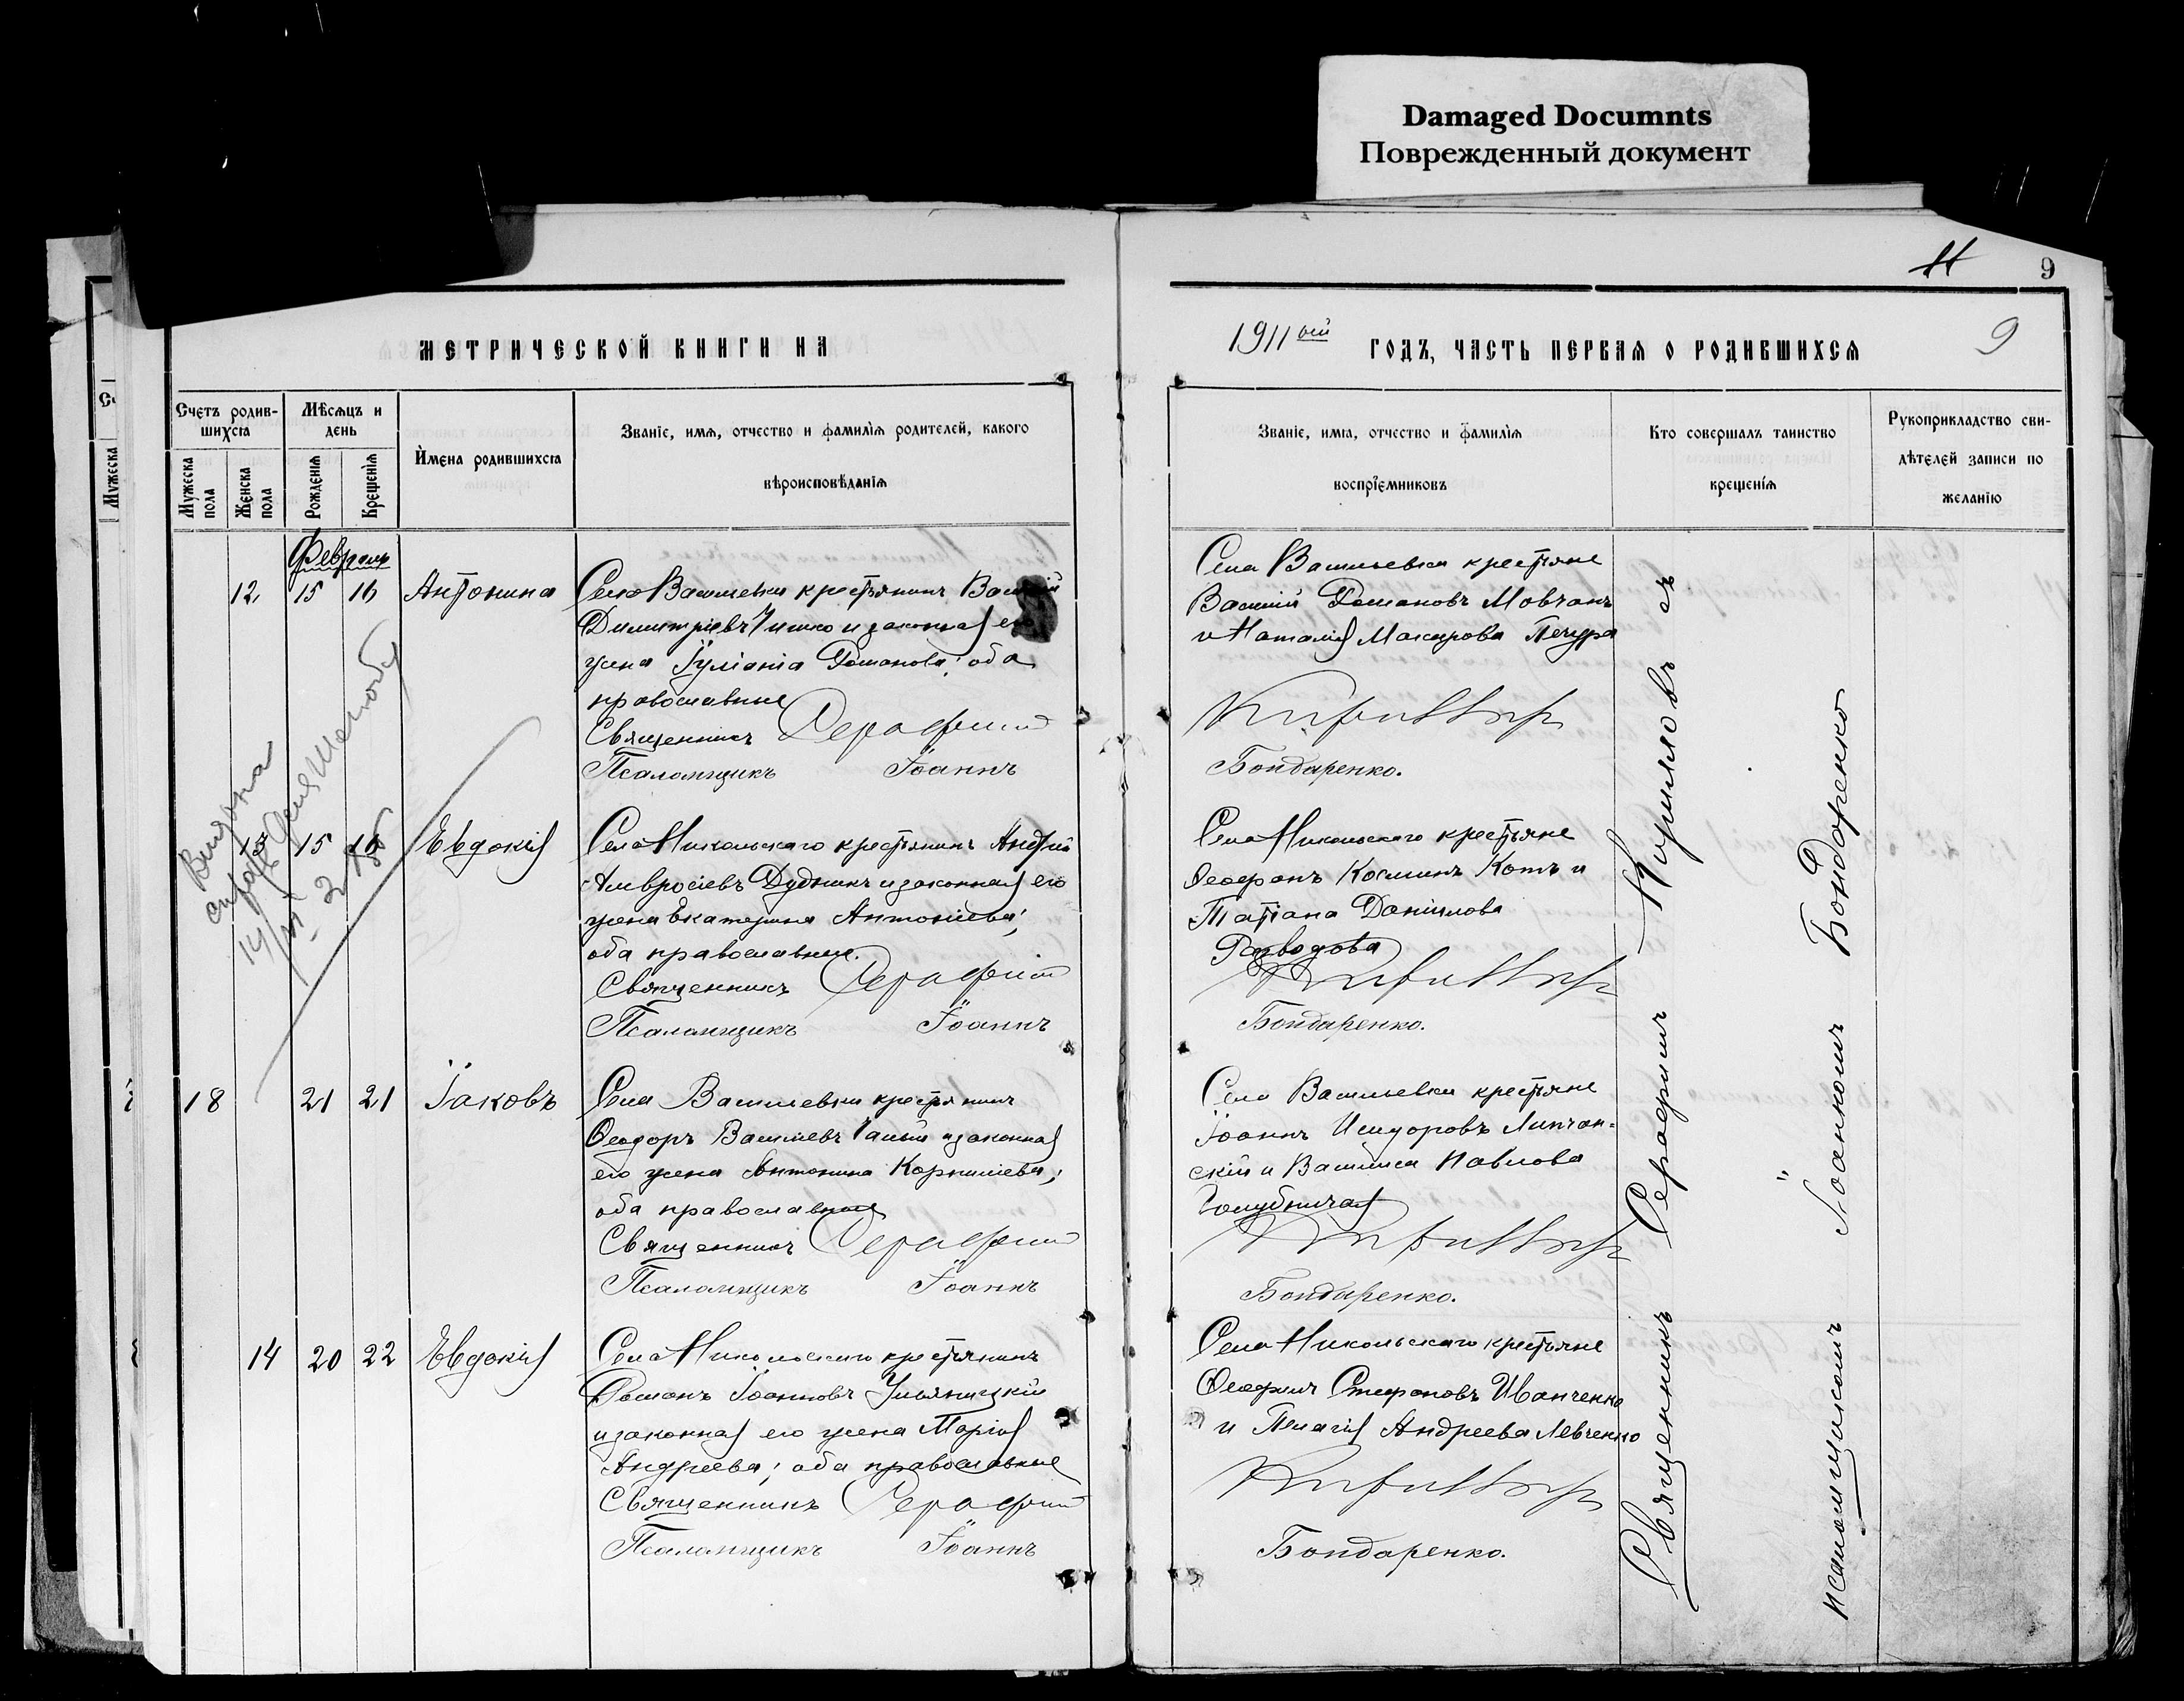 Damaged Documnts
Поврежденный документ
11
9
МЕТРИЧЕСКОЙ КНИГИ НА
1911 ый ГОДЪ, ЧАСТЬ ПЕРВАЯ О РОДИВШИХСЯ
9
Счетъ родив-
шихся
Мужеска пола
Женска пола
Мѣсяцъ и
день
Рожденія
Крещенія
Имена родившихся
Званіе, имя, отчество и фамилія родителей, какого
вѣроисповѣданія
Званіе, имя, отчество и фамилія
воспріемниковъ
Кто совершалъ таинство
крещенія
Рукоприкладство сви-
дѣтелей записи по
желанію
Мужеска
Февраль
12. 15 16 Антонина
Села Васильевки крестьянинъ Василій
Димитріевъ и законная его
жена Іуліанія Романова; оба
православные
Священникъ Серафим
Псаломщикъ Іоаннъ
Села Васильевки крестьяне
Василій Романовъ Мовчанъ
и Наталія Макарова Печура
Кириллов
Бондаренко.
Выдана
14/VI
13 15 16 Евдокія
Села Никольскаго крестьянинъ Андрей
Амвросіевъ Дудникъ и законная его
жена Екатерина Антоніева;
оба православные.
Священникъ Серафим
Псаломщикъ Іоаннъ
Села Никольскаго крестьяне
Феофанъ Косминъ Котъ и
Татіана Даніилова
Разводова
Кириллов
Бондаренко.
18 21 21 Іаковъ
Села Васильевки крестьянинъ
Феодоръ Василіевъ и законная
его жена Антонина Корнилієва;
оба православные
Священникъ Серафим
Псаломщикъ Іоаннъ
Села Васильевки крестьяне
Іоаннъ Исидоровъ Липчан-
скій и Васса Павлова
Голубничая
Кириллов
Бондаренко.
14 20 22 Евдокія
Села Никольскаго крестьянинъ
Романъ Іоанновъ Ульяницкій
и законная его жена Марія
Андреева; оба православные
Священникъ Серафим
Псаломщикъ Іоаннъ
Села Никольскаго крестьяне
Феофилъ Стефановъ Иванченко
и Пелагія Андреева Левченко
Кириллов
Бондаренко.
Священникъ Серафимъ Кирилловъ съ
псаломщикомъ Іоанномъ Бондаренко